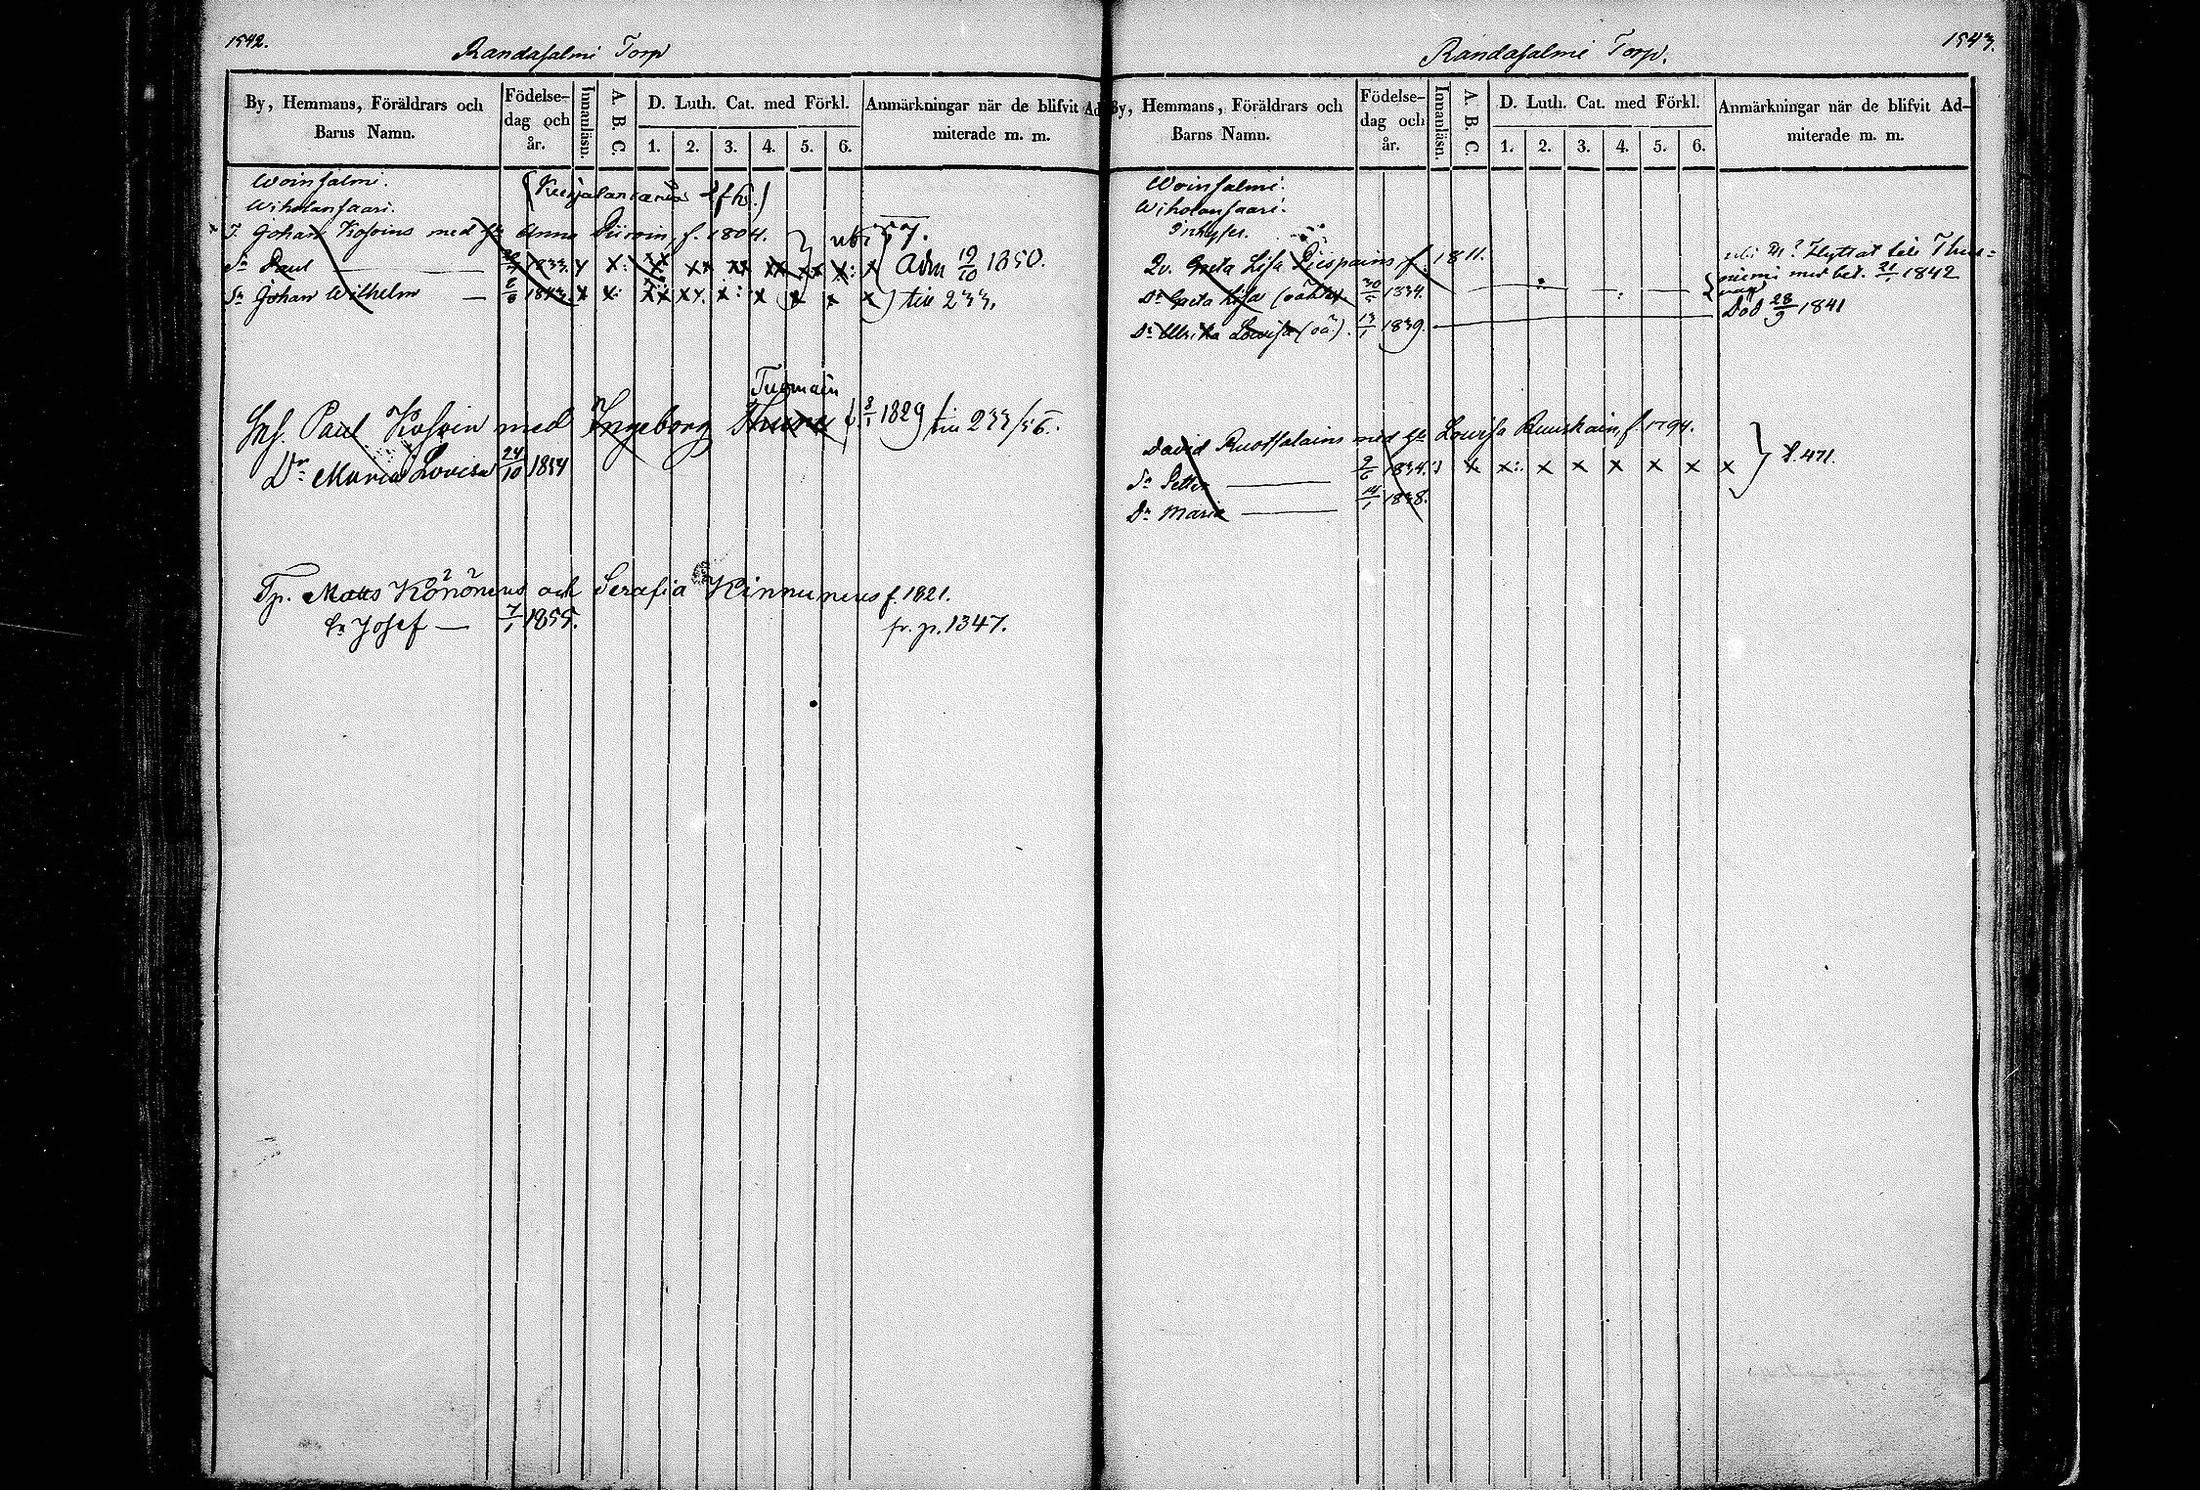 1542.
Randasalmi Torp
By, Hemmans, Föräldrars och Barns Namn.
Födelse-dag och år.
Innanläsn.
A. B. C.
D. Luth. Cat. med Förkl.
1. 2. 3. 4. 5. 6.
Anmärkningar när de blifvit Ad
miterade m. m.
Woinsalmi.
Wiholansaari.
T. Johan Kosoins med Anna f. 1804. 57.
Sn Paul 1833. x x: xx xx xx xx xx x: x Adm 19/10 1850.
Sn Johan Wilhelm 1843. x x: xx xx. x: x x x x till 233.
Tuomain
Inh. Paul Kosoin med Ingeborg 1829 till 233/56.
Dr Maria Lovisa 24/10 1854
Tp. Matts Könönens och Serafia Kinnunens f. 1821.
Sn Josef — 7/1 1855. fr. p. 1347.
1543.
Randasalmi Torp.
By, Hemmans, Föräldrars och Barns Namn.
Födelse-dag och år.
Innanläsn.
A. B. C.
D. Luth. Cat. med Förkl.
1. 2. 3. 4. 5. 6.
Anmärkningar när de blifvit Ad-
miterade m. m.
Woinsalmi.
Wiholansaari.
Inhyses.
Qv. Greta Lisa f. 1811. Flyttat till Thus=
niemi med bet. 21/1 1842
Dr Greta Lisa 30/5 1834.
Dr Ulrika Lovisa (oä.) 13/1 1839. Död 28/9 1841
David Ruotsalains med Lovisa f. 1794.
Sn Petter 1834. x x: x x x x x x 471.
Dr Maria 14/1 1838.